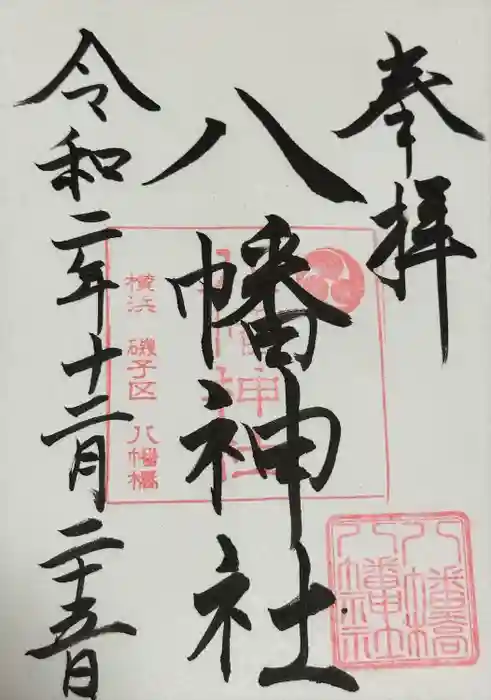 奉拝
八幡神社
令和二年十二月二十五日
八幡神社
横浜 磯子区 八幡橋
八幡橋
八幡神社